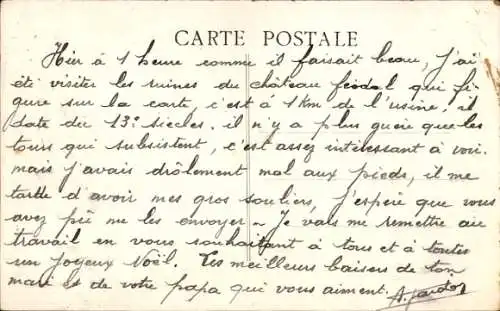 CARTE POSTALE
Hier à 1 heure comme il faisait beau, j'ai
été visiter les ruines du château féodal qui fi-
gure sur la carte, c'est à 1 km de l'usine, il
date du 13e siecles. il n'y a plus guère que les
tours qui subsistent, c'est assez intéressant à voir.
mais j'avais drôlement mal aux pieds, il me
tarde d'avoir mes gros souliers, j'espère que vous
avez pu me les envoyer - Je vais me remettre au
travail en vous souhaitant à tous et à toutes
un Joyeux Noël. Les meilleurs baisers de ton
mari et de votre papa qui vous aiment.